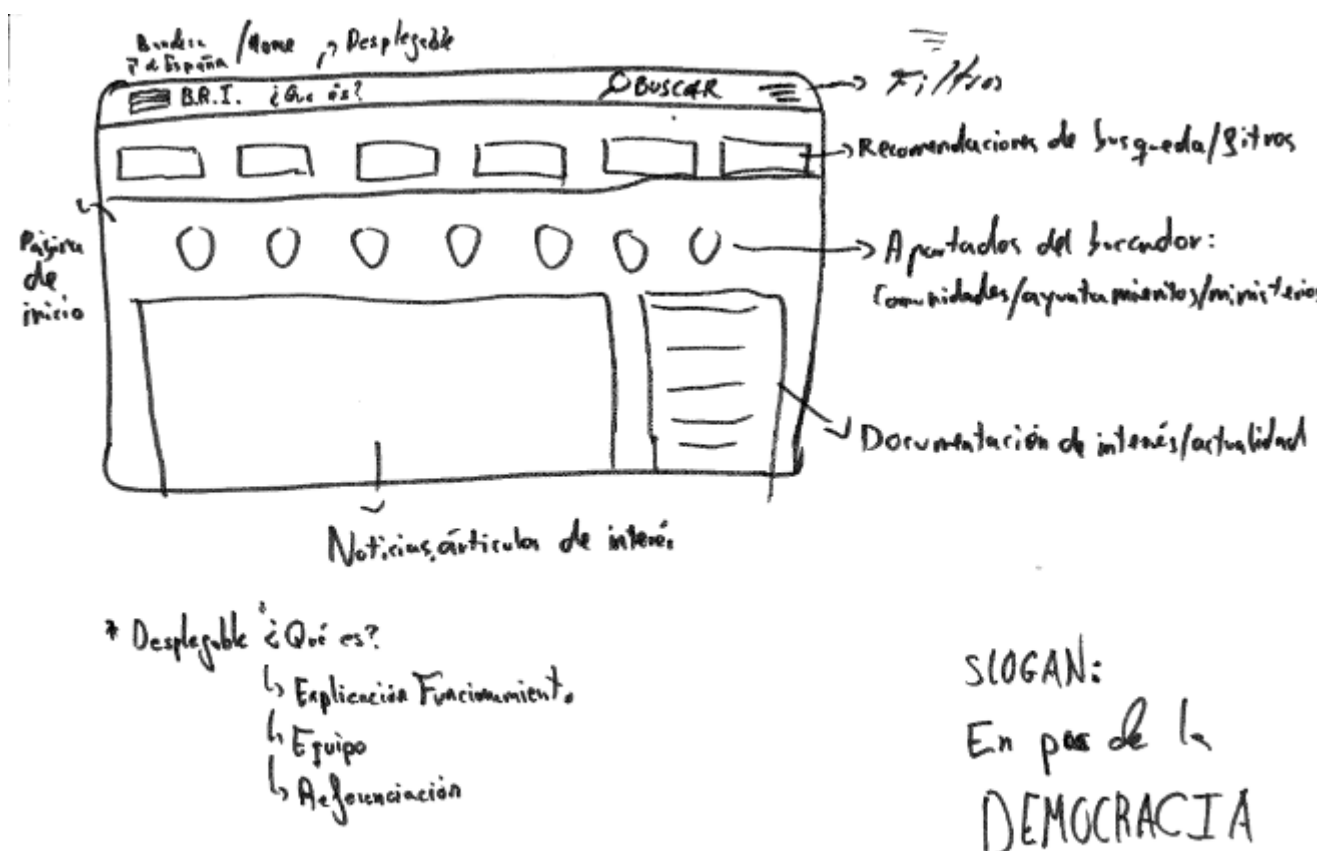 Bandera /Home Desplegable
de España
B.R.I. ¿Que es? BUSCAR
Filtros
Recomendaciones de busqueda/
Página
de
inicio
Apartados del buscador:
Comunidades/ayuntamientos/ministerios
Documentación de interés/actualidad
Noticias, árticulos de interés
* Desplegable ¿Qué es?
Explicación Funcionamiento
Equipo
SLOGAN:
En pos de la
DEMOCRACIA